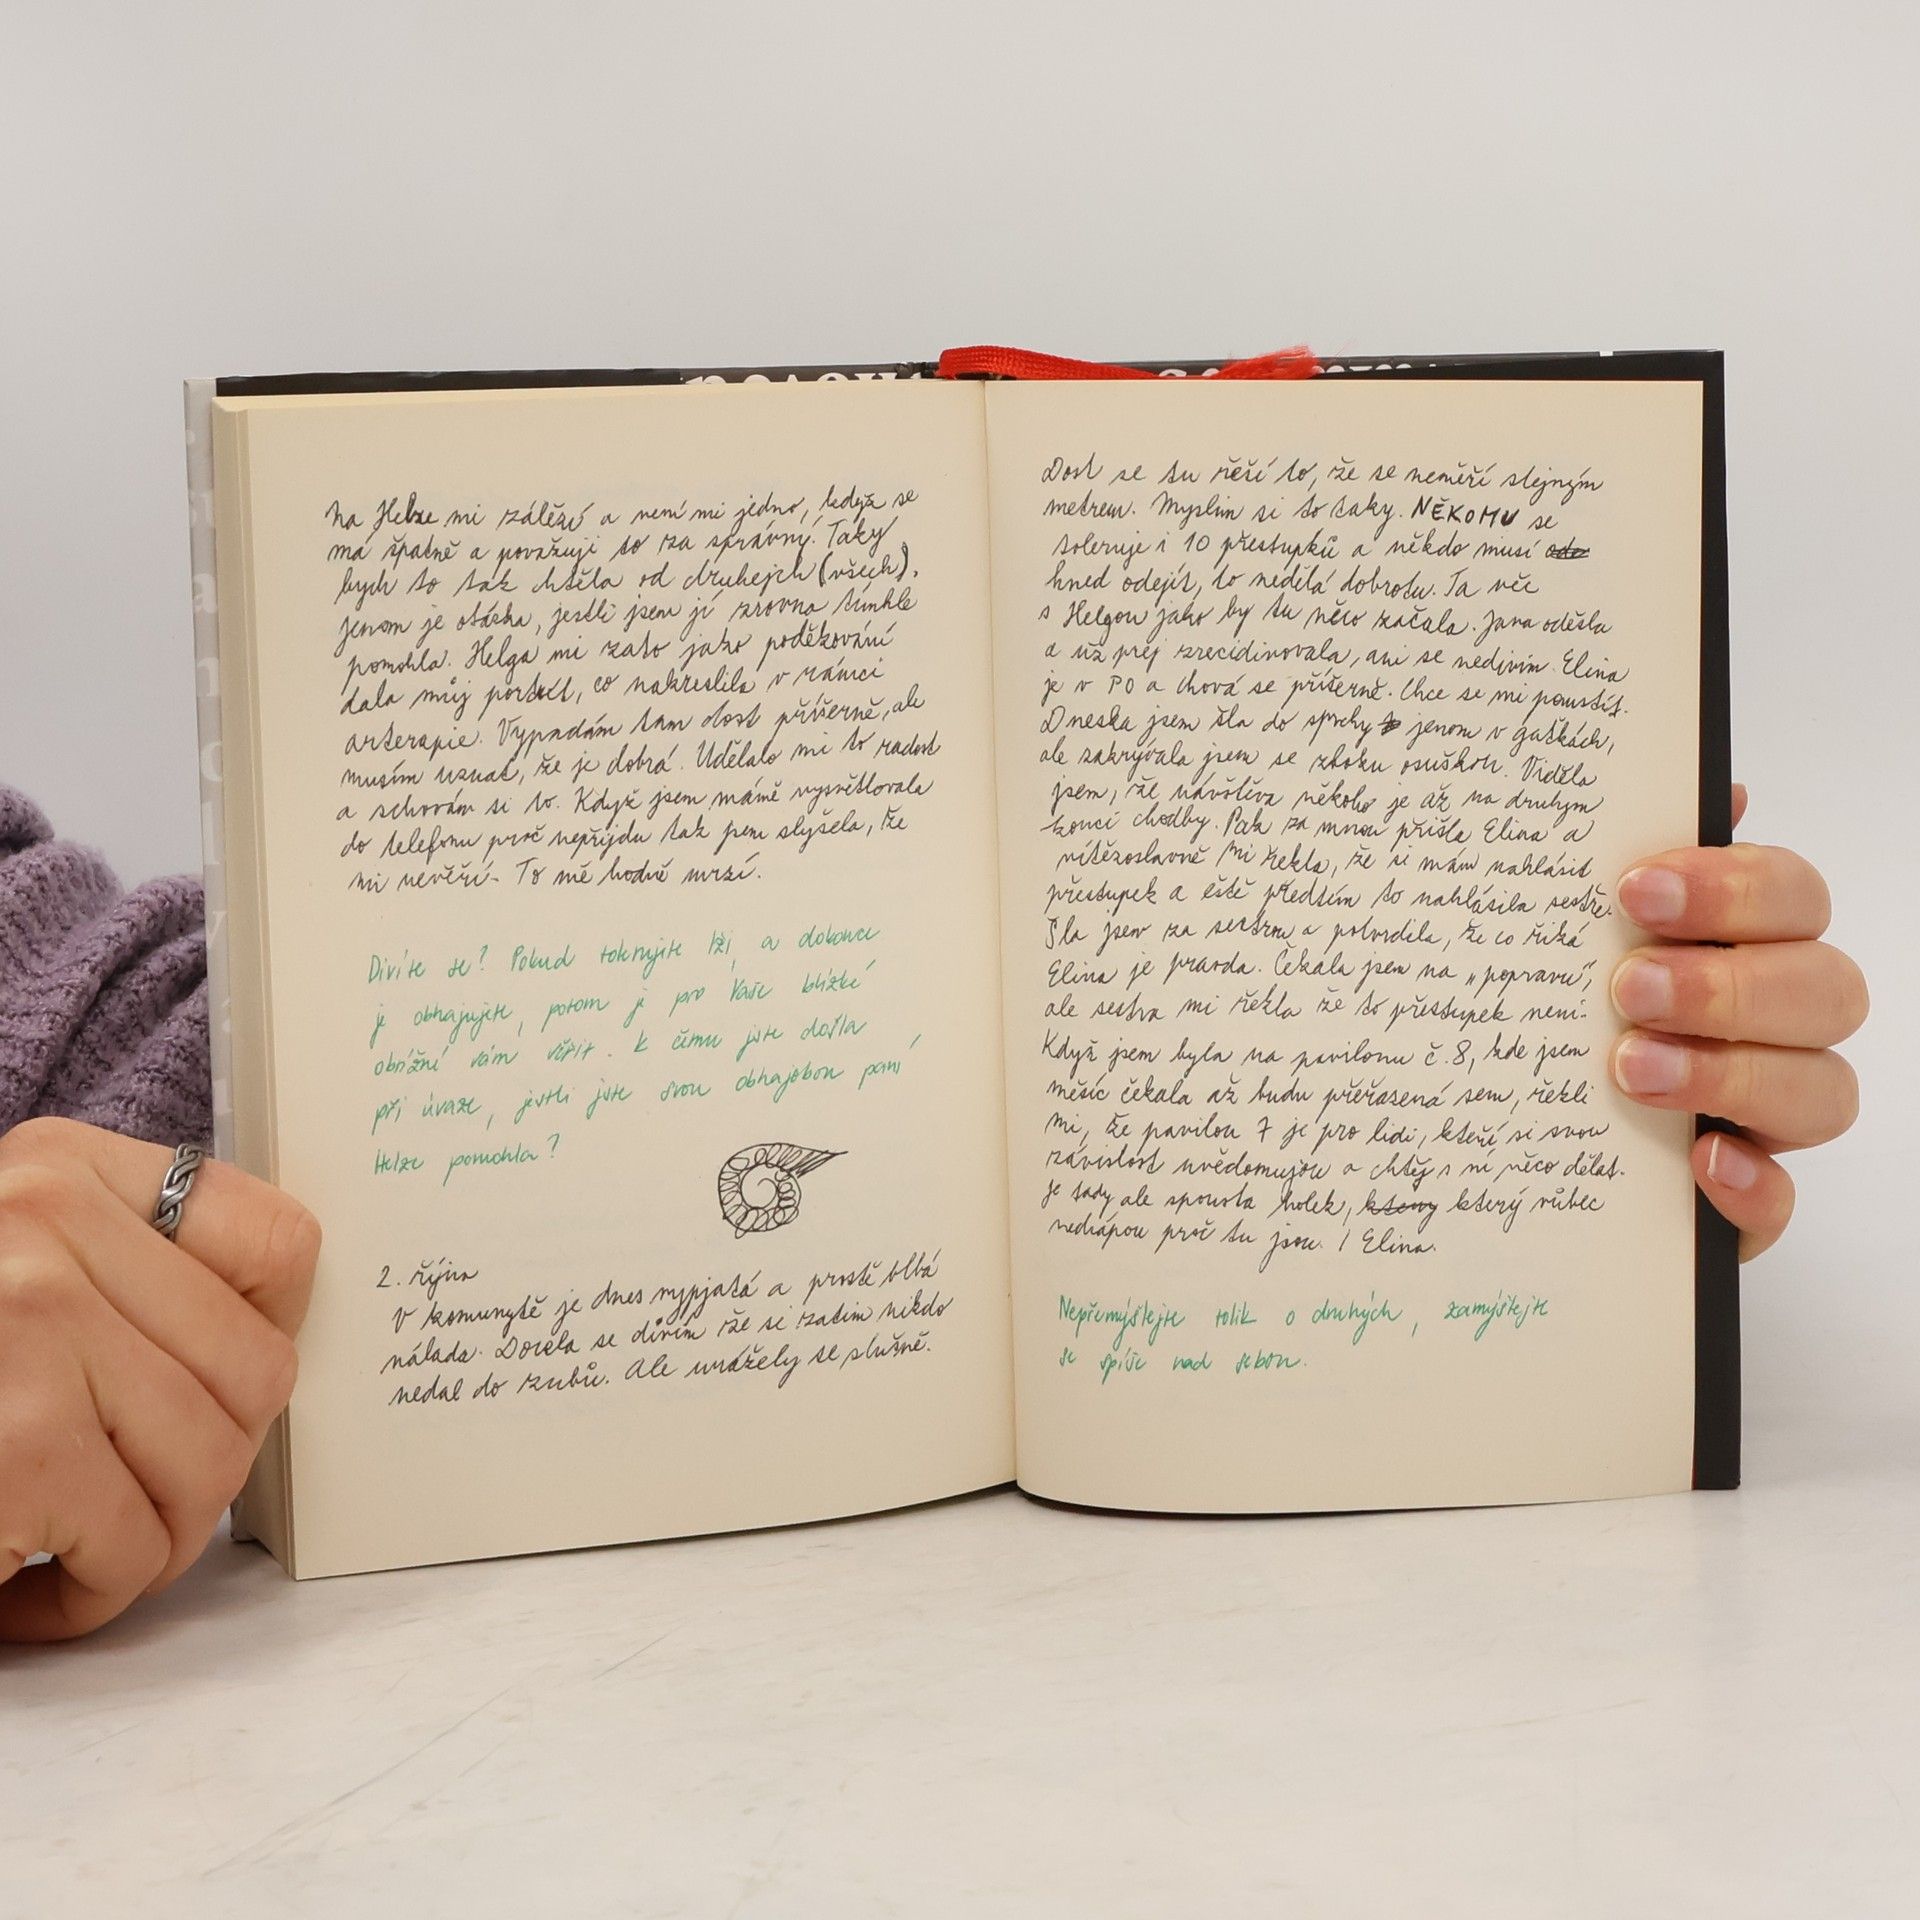 Na Helze mi záleží a není mi jedno, kedyž se
má špatně a považuji to za správný. Taky
bych to tak chtěla od druhejch (všech),
jenom je otázka, jestli jsem jí zrovna tímhle
pomohla. Helga mi zato jako poděkování
dala můj portrét, co nakreslila v rámci
arterapie. Vypadám tam dost příšerně, ale
musím uznat, že je dobrá. Udělalo mi to radost
a schovám si to. Když jsem mámě vysvětlovala
do telefonu proč nepřijdu tak jsem slyšela, že
mi nevěří. To mě hodně mrzí.
Divíte se? Pokud tolerujete lži, a dokonce
je obhajujete, potom je pro Vaše blízké
obtížné vám věřit. K čemu jste došla
při úvaze, jestli jste svou obhajobou paní
Helze pomohla?
2. října
V komunytě je dnes vypjatá a prostě blbá
nálada. Docela se divím že si zatim nikdo
nedal do zubů. Ale urážely se slušně.
Dost se tu řeší to, že se neměří stejným
metrem. Myslim si to taky. NĚKOMU se
toleruje i 10 přestupků a někdo musí odo
hned odejít, to nedělá dobrotu. Ta věc
s Helgou jako by tu něco začala. Jana odešla
a už prej zrecidivovala, ani se nedivim. Elina
je v PO a chová se příšerně. Chce se mi pomstít.
Dneska jsem šla do sprchy jenom v gaťkách,
ale zakrývala jsem se zboku osuškou. Viděla
jsem, že návštěva někoho je až na druhym
konci chodby. Pak za mnou přišla Elina a
vítězoslavně mi řekla, že si mám nahlásit
přestupek a eště předtím to nahlásila sestře.
Šla jsem za sestrou a potvrdila, že co řiká
Elina je pravda. Čekala jsem na „popravu“,
ale sestra mi řekla že to přestupek neni.
Když jsem byla na pavilonu č. 8, kde jsem
měsíc čekala až budu přeřazená sem, řekli
mi, že pavilon 7 je pro lidi, kteří si svou
závislost uvědomujou a chtěj s ní něco dělat.
Je tady ale spousta holek, ktery který vůbec
nechápou proč tu jsou. I Elina.
Nepřemýšlejte tolik o druhých, zamýšlejte
se spíše nad sebou.